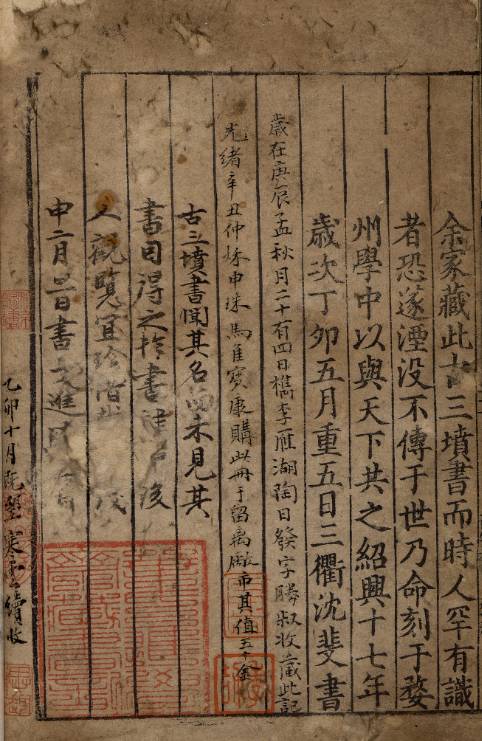 余家藏此古三墳書而時人罕有識
者恐遂湮没不傳于世乃命刻于婺
州學中以與天下共之紹興十七年
歲次丁卯五月重五日三衢沈斐書
歲在庚辰孟秋月二十有四日檇李雁湖陶日發字勝叔收藏此記
光緒辛丑仲秋寶康購此冊于留离廠市其值五金
古三墳書聞其名而未見其
書因得之於書後
人觀覽宜珍惜
申二月書進
乙卯十月寒雲續收